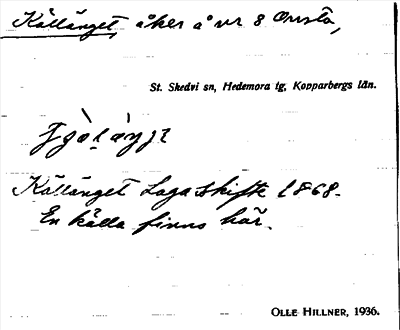 Källänget, åker å nr 8 Onsta,
St. Skedvi sn, Hedemora tg, Kopparbergs län.
Källänget Laga skifte 1868.
En källa finns här.
OLLE HILLNER, 1936.